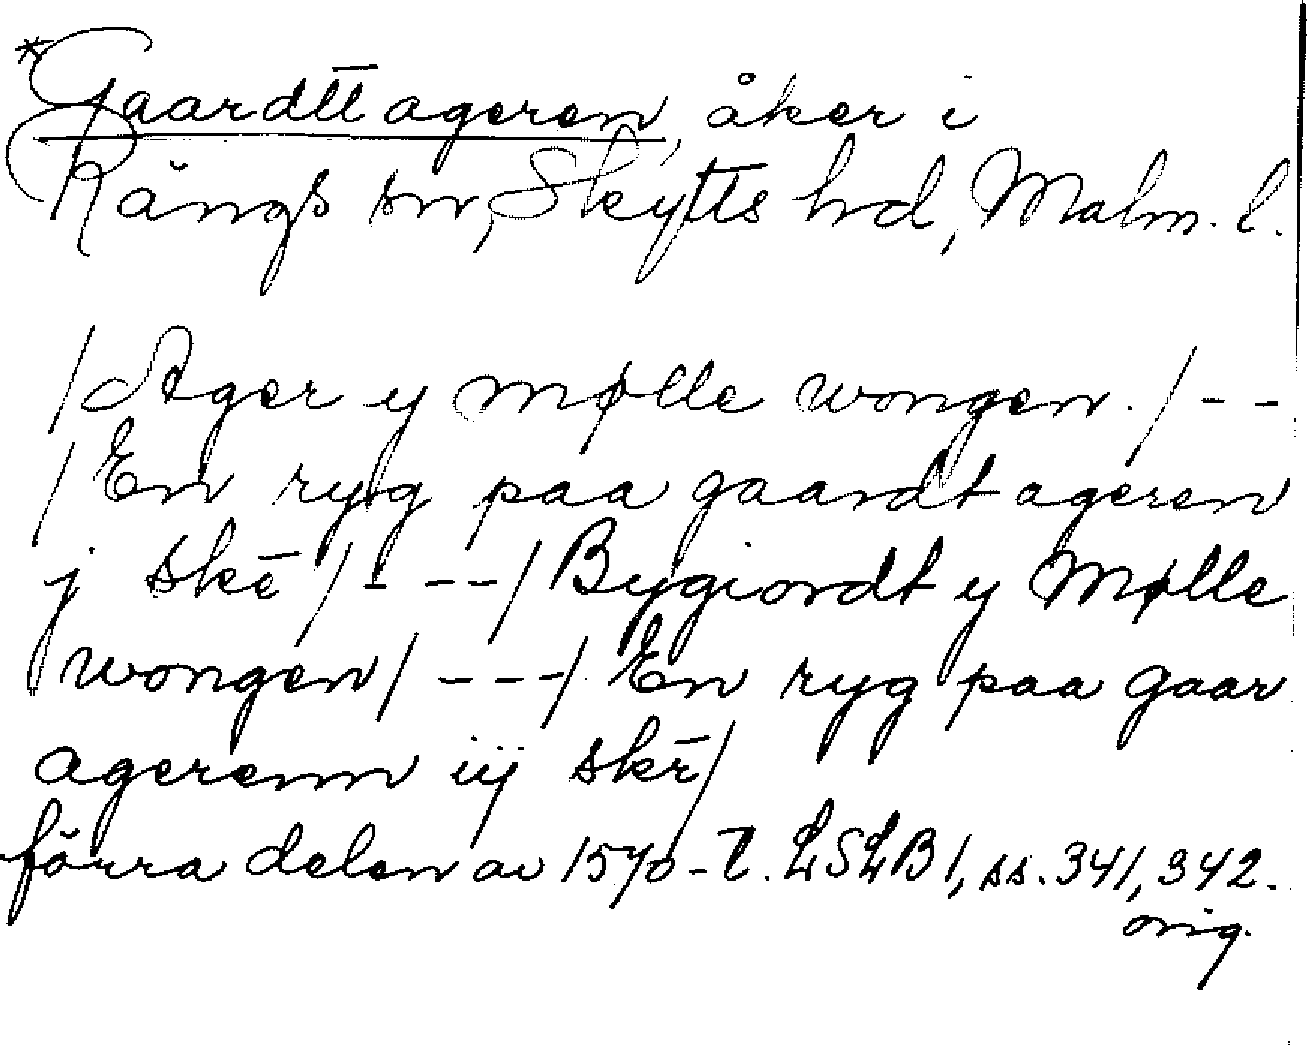 *Gaardtt ageren, åker i
Rängs sn, Skytts hd, Malm. l.
/Ager y mølle wongen. / - -
/ En ryg paa gaardt ageren
j skē / - - - / Bygiordt y Mølle
wongen / - - - / En ryg paa gaar
agerenn iij skē /
förra delen av 1570-t. LSLB 1, ss. 341, 342.
orig.